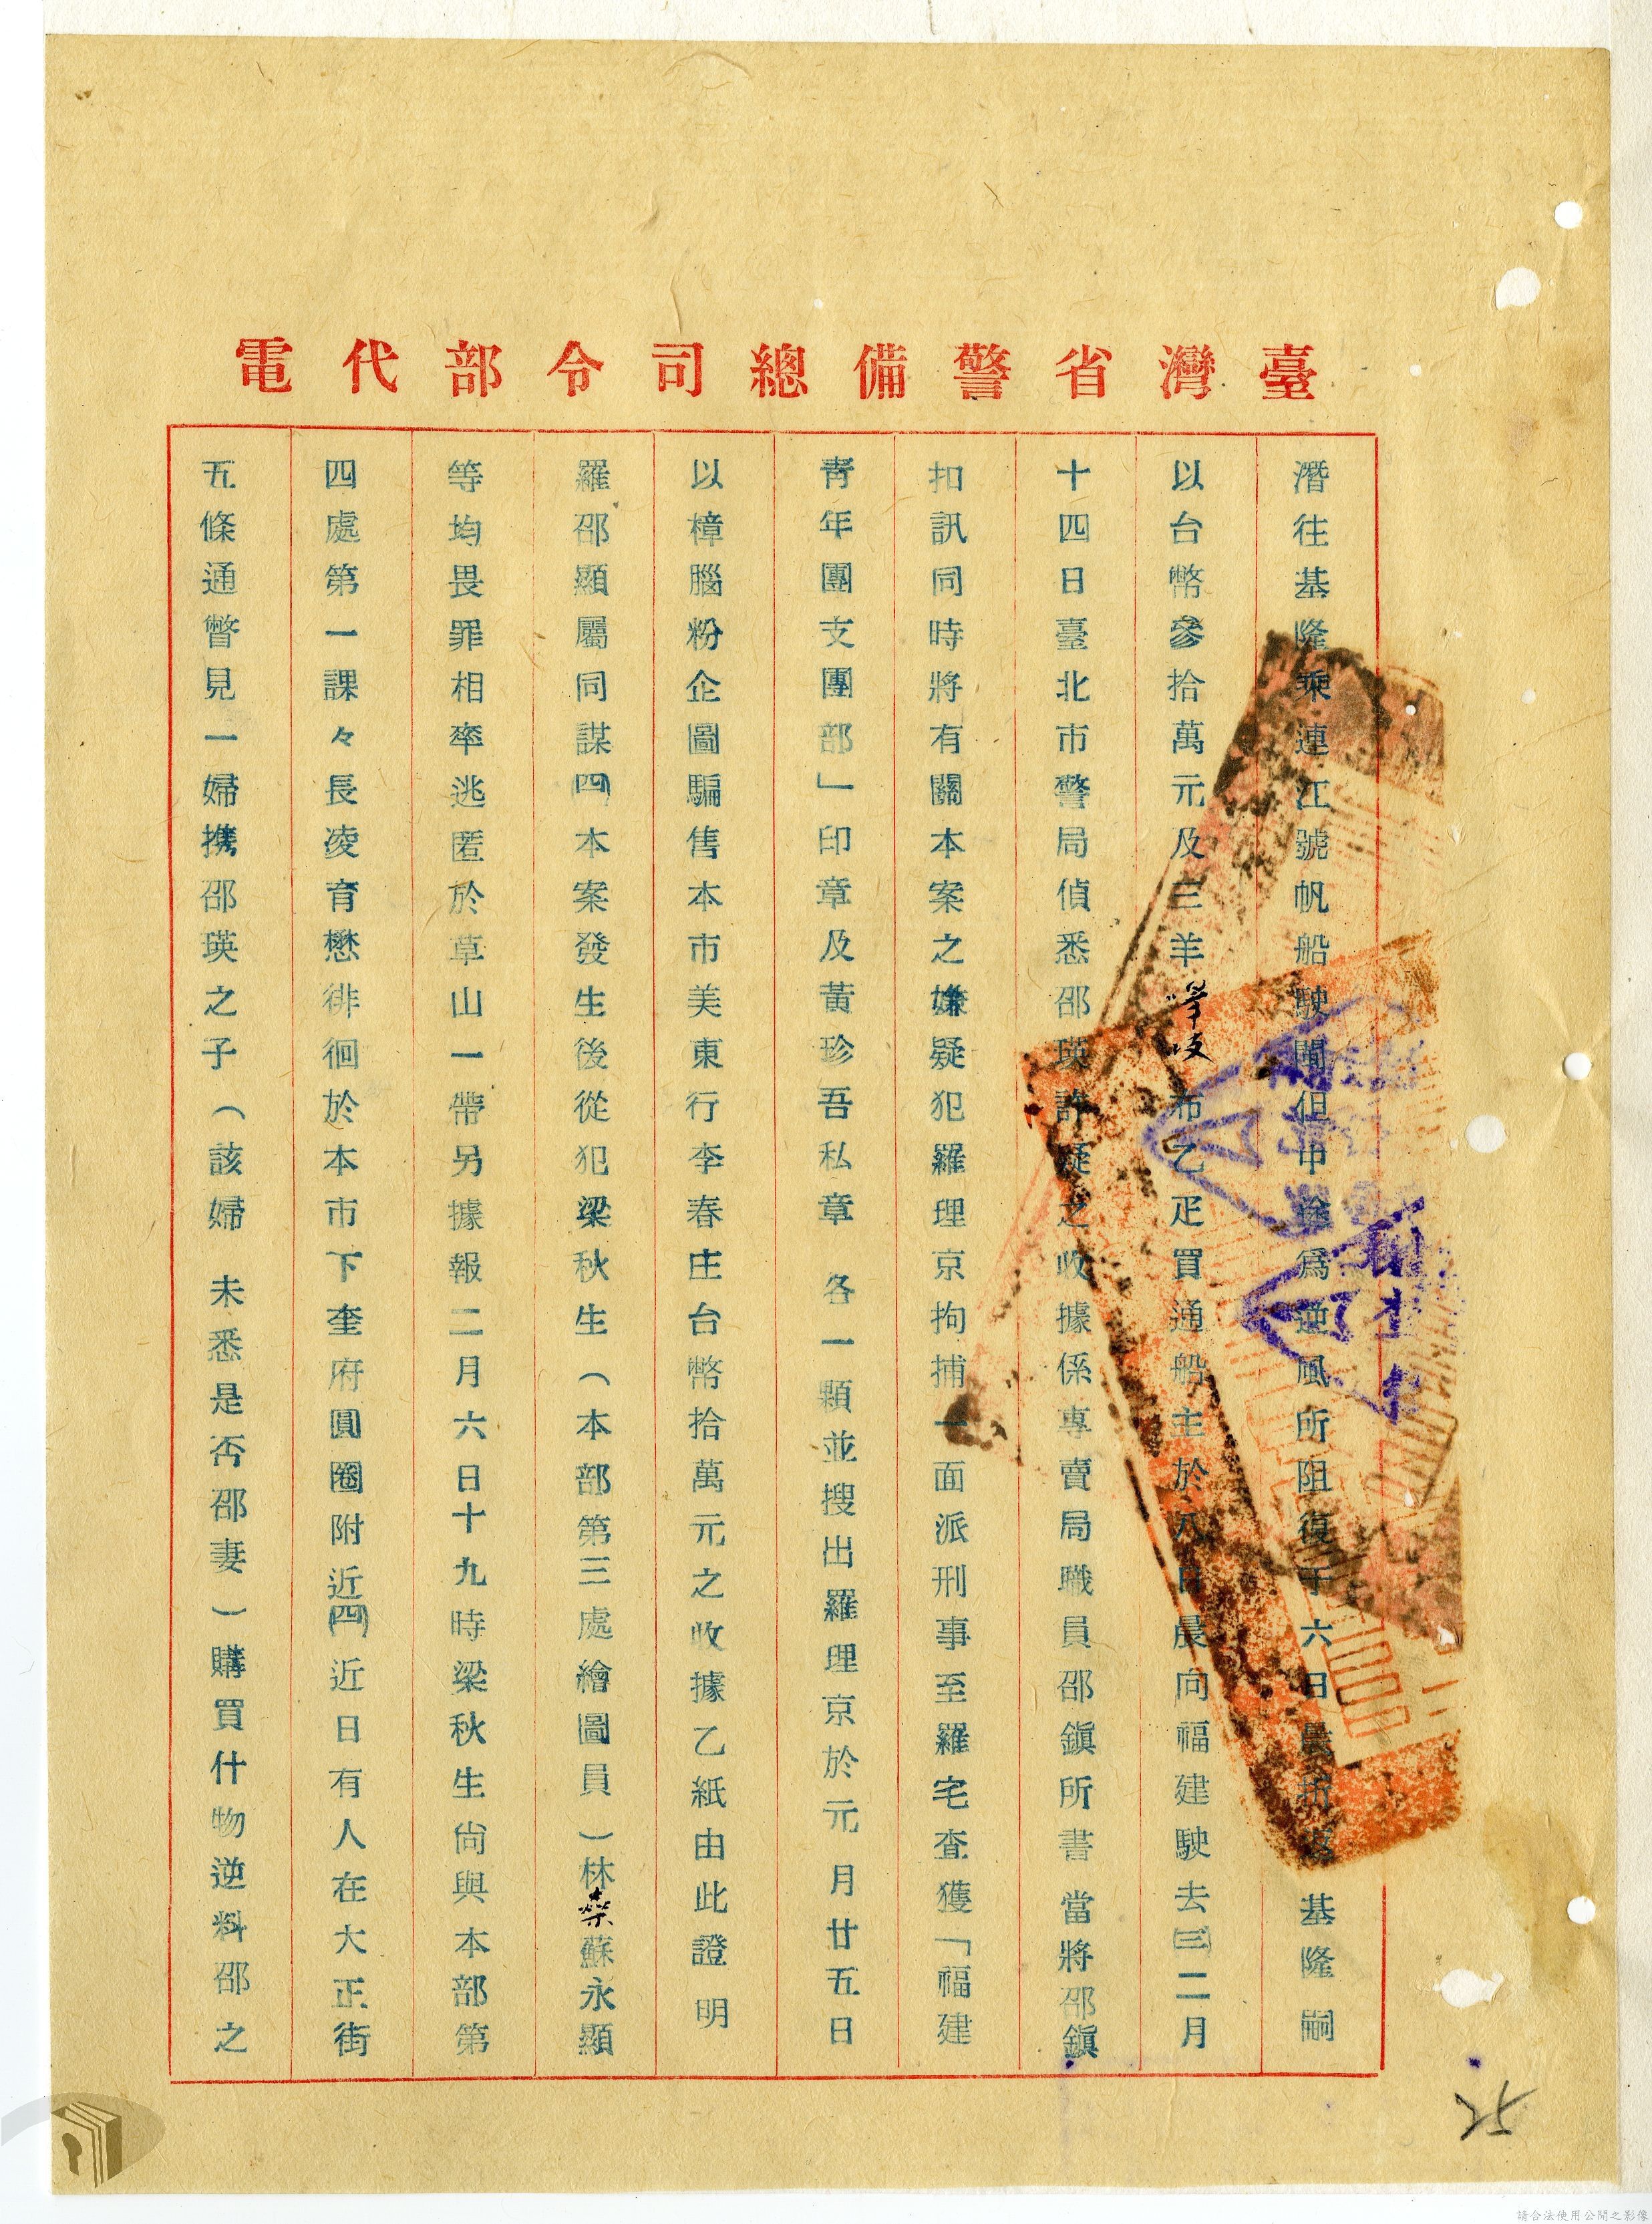 臺灣省警備總司令部代電
潛往基隆乘連江號帆船駛閩但中途爲逆風所阻復于六日晨折返基隆嗣
以台幣參拾萬元及三羊嗶吱布乙疋買通船主於八日晨向福建駛去㈢二月
十四日臺北市警局偵悉邵瑛詐疑之收據係專賣局職員邵鎭所書當將邵鎭
扣訊同時將有關本案之嫌疑犯羅理京拘捕一面派刑事至羅宅查獲「福建
青年團支團部」印章及黃珍吾私章各一顆並搜出羅理京於元月廿五日
以樟腦粉企圖騙售本市美東行李春庄台幣拾萬元之收據乙紙由此證明
羅邵顯屬同謀㈣本案發生後從犯梁秋生（本部第三處繪圖員）林燊蘇永顯
等均畏罪相率逃匿於草山一帶另據報二月六日十九時梁秋生尙與本部第
四處第一課々長凌育懋徘徊於本市下奎府圓圈附近㈣近日有人在大正街
五條通瞥見一婦携邵瑛之子（該婦未悉是否邵妻）購買什物逆料邵之
請合法使用公開之影像